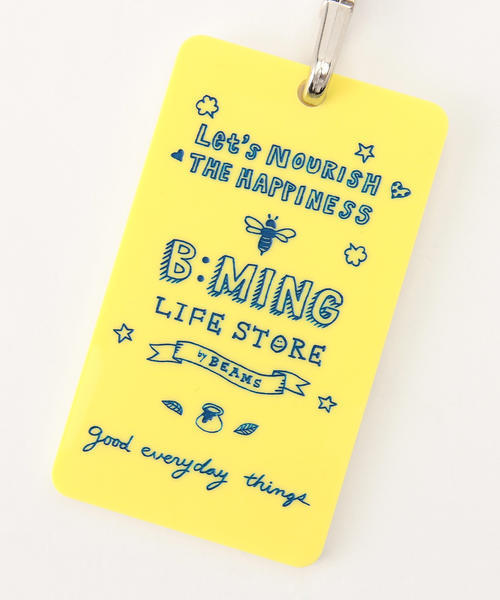 Let's NOURISH
THE HAPPINESS
B:MING
LIFE STORE
by BEAMS
Good everyday things